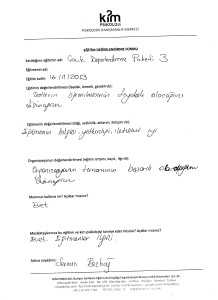 kim
PSİKOLOJİ
PSİKOLOJİK DANIŞMANLIK MERKEZİ
EĞİTİM DEĞERLENDİRME FORMU
Katıldığınız eğitimin adı: Çocuk Değerlendirme Paketi 3
Eğitmenin adı:
Eğitim tarihi: 16/11/2013
Eğitimin değerlendirilmesi (faydalı, önemli, gerekli):
Testlerin öğrenilmesinin faydalı olacağını
düşünüyorum
Eğitmenin değerlendirilmesi (bilgi, yeterlilik, aktarım, iletişim vb)
Eğitmenin bilgisi yeterliydi, iletişimi iyi
Organizasyonun değerlendirilmesi (eğitim ortamı, kayıt, ilgi vb)
Organizasyonun tamamının başarılı olduğunu
düşünüyorum
Memnun kaldınız mı? Açıklar mısınız?
Evet
Meslektaşlarınıza bu eğitimi ve kim psikolojiyi tavsiye eder misiniz? Açıklar mısınız?
Evet. Eğitmenler ilgili
Adınız soyadınız: